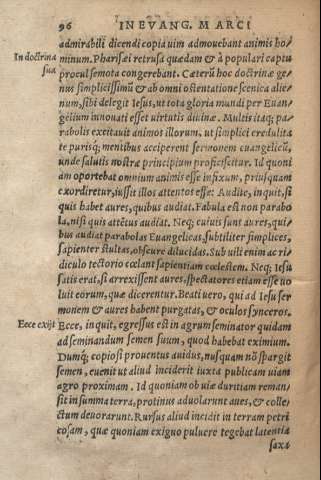 96 IN EVANG. MARCI
admirabili dicendi copia uim admouebant animis ho-
minum. Pharisæi retrusa quædam & à populari captu
In doctrina
sua
procul semota congerebant. Cæterũ hoc doctrinæ ge-
nus simplicissimũ & ab omni ostentatione scenica alie-
num, sibi delegit Iesus, ut tota gloria mundi per Euan-
gelium innouati esset uirtutis diuinæ. Multis itaq; pa-
rabolis excitauit animos illorum, ut simplici credulita
te purisq; mentibus acciperent sermonem euangelicũ,
unde salutis nostræ principium proficiscitur. Id quoni
am oportebat omnium animis esse infixum, priusquam
exordiretur, iussit illos attentos esse: Audite, inquit, si
quis habet aures, quibus audiat. Fabula est non parabo
la, nisi quis attẽtus audiat. Neq; cuiuis sunt aures, qui-
bus audiat parabolas Euangelicas, subtiliter simplices,
sapienter stultas, obscure dilucidas. Sub uili enim ac ri
diculo tectorio cœlant sapientiam cœlestem. Neq; Iesu
satis erat, si arrexissent aures, spectatores etiam esse uo
luit eorum, quæ dicerentur. Beati uero, qui ad Iesu ser
monem & aures habent purgatas, & oculos synceros.
Ecce exijt
Ecce, inquit, egressus est in agrum seminator quidam
ad seminandum semen suum, quod habebat eximium.
Dumq; copiosi prouentus auidus, nusquam nõ spargit
semen, euenit ut aliud inciderit iuxta publicam uiam
agro proximam. Id quoniam ob uiæ duritiam reman
sit in summa terra, protinus aduolarunt aues, & colle-
ctum deuorarunt. Rursus aliud incidit in terram petri
cosam, quæ quoniam exiguo puluere tegebat latentia
saxa